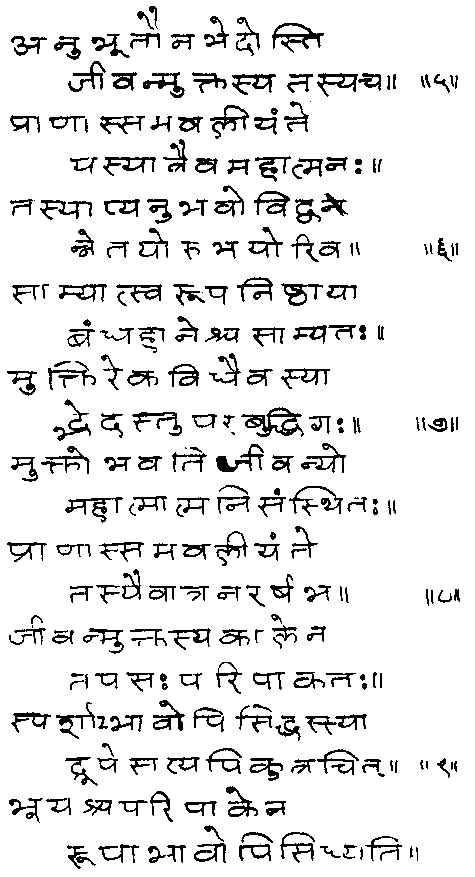 अनुभूतौ न भेदोस्ति
जीवन्मुक्तस्य तस्य च॥ ॥५॥
प्राणास्समवलीयंते
यस्यात्रैव महात्मनः॥
तस्याप्यनुभवो विद्व
न्नेतयोरुभयोरिव॥ ॥६॥
साम्यात्स्वरूपनिष्ठाया
बंधहानेश्च साम्यतः॥
मुक्तिरेकविधैव स्या
द्भेदस्तु परबुद्धिगः॥ ॥७॥
मुक्तो भवति जीवन्यो
महात्मात्मनि संस्थितः॥
प्राणास्समवलीयंते
तस्यैवात्र नरर्षभ॥ ॥८॥
जीवन्मुक्तस्य कालेन
तपसः परिपाकतः॥
स्पर्शाभावोपि सिद्धस्स्या
द्रूपे सत्यपि कुत्रचित्॥ ॥९॥
भूयश्च परिपाकेन
रूपाभावोपि सिध्यति॥